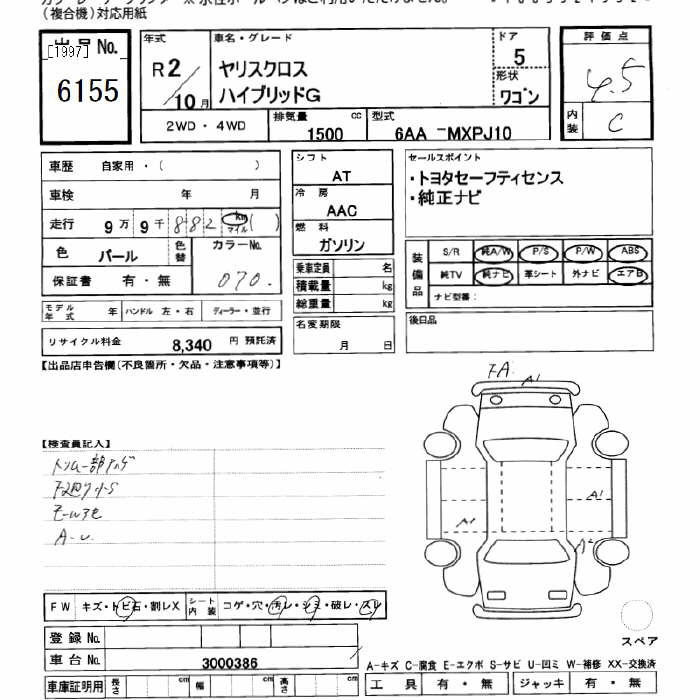 （複合機）対応用紙
出品No.
[1997]
6155
年式
R2/10月
車名・グレード
ヤリスクロス
ハイブリッドG
ドア
5
形状
ワゴン
評価点
4.5
内装
C
2WD・4WD
排気量 1500 cc
型式 6AA -MXPJ10
車歴 自家用・（ ）
車検 年 月
走行 9万 9千 882 km マイル ( )
色 パール 色替 カラーNo.
070.
保証書 有・無
モデル年式 年 ハンドル 左・右 ディーラー・並行
リサイクル料金 8,340 円 預託済
シフト
AT
冷房
AAC
燃料
ガソリン
乗車定員 名
積載量 kg
総重量 kg
名変期限
月 日
セールスポイント
・トヨタセーフティセンス
・純正ナビ
装備品
S/R 純A/W P/S P/W ABS
純TV 純ナビ 革シート 外ナビ エアB
ナビ型番：
後日品
【出品店申告欄(不良箇所・欠品・注意事項等)】
【検査員記入】
A-U
FA.
A1
A1
A1
A2
FW キズ・トビ石・割レX シート内装 コゲ・穴・汚レ・シミ・破レ・スレ
登録No.
車台No. 3000386
車庫証明用 長さ cm 幅 cm 高さ cm
スペア
A-キズ C-腐食 E-エクボ S-サビ U-凹ミ W-補修 XX-交換済
工具 有・無 ジャッキ 有・無